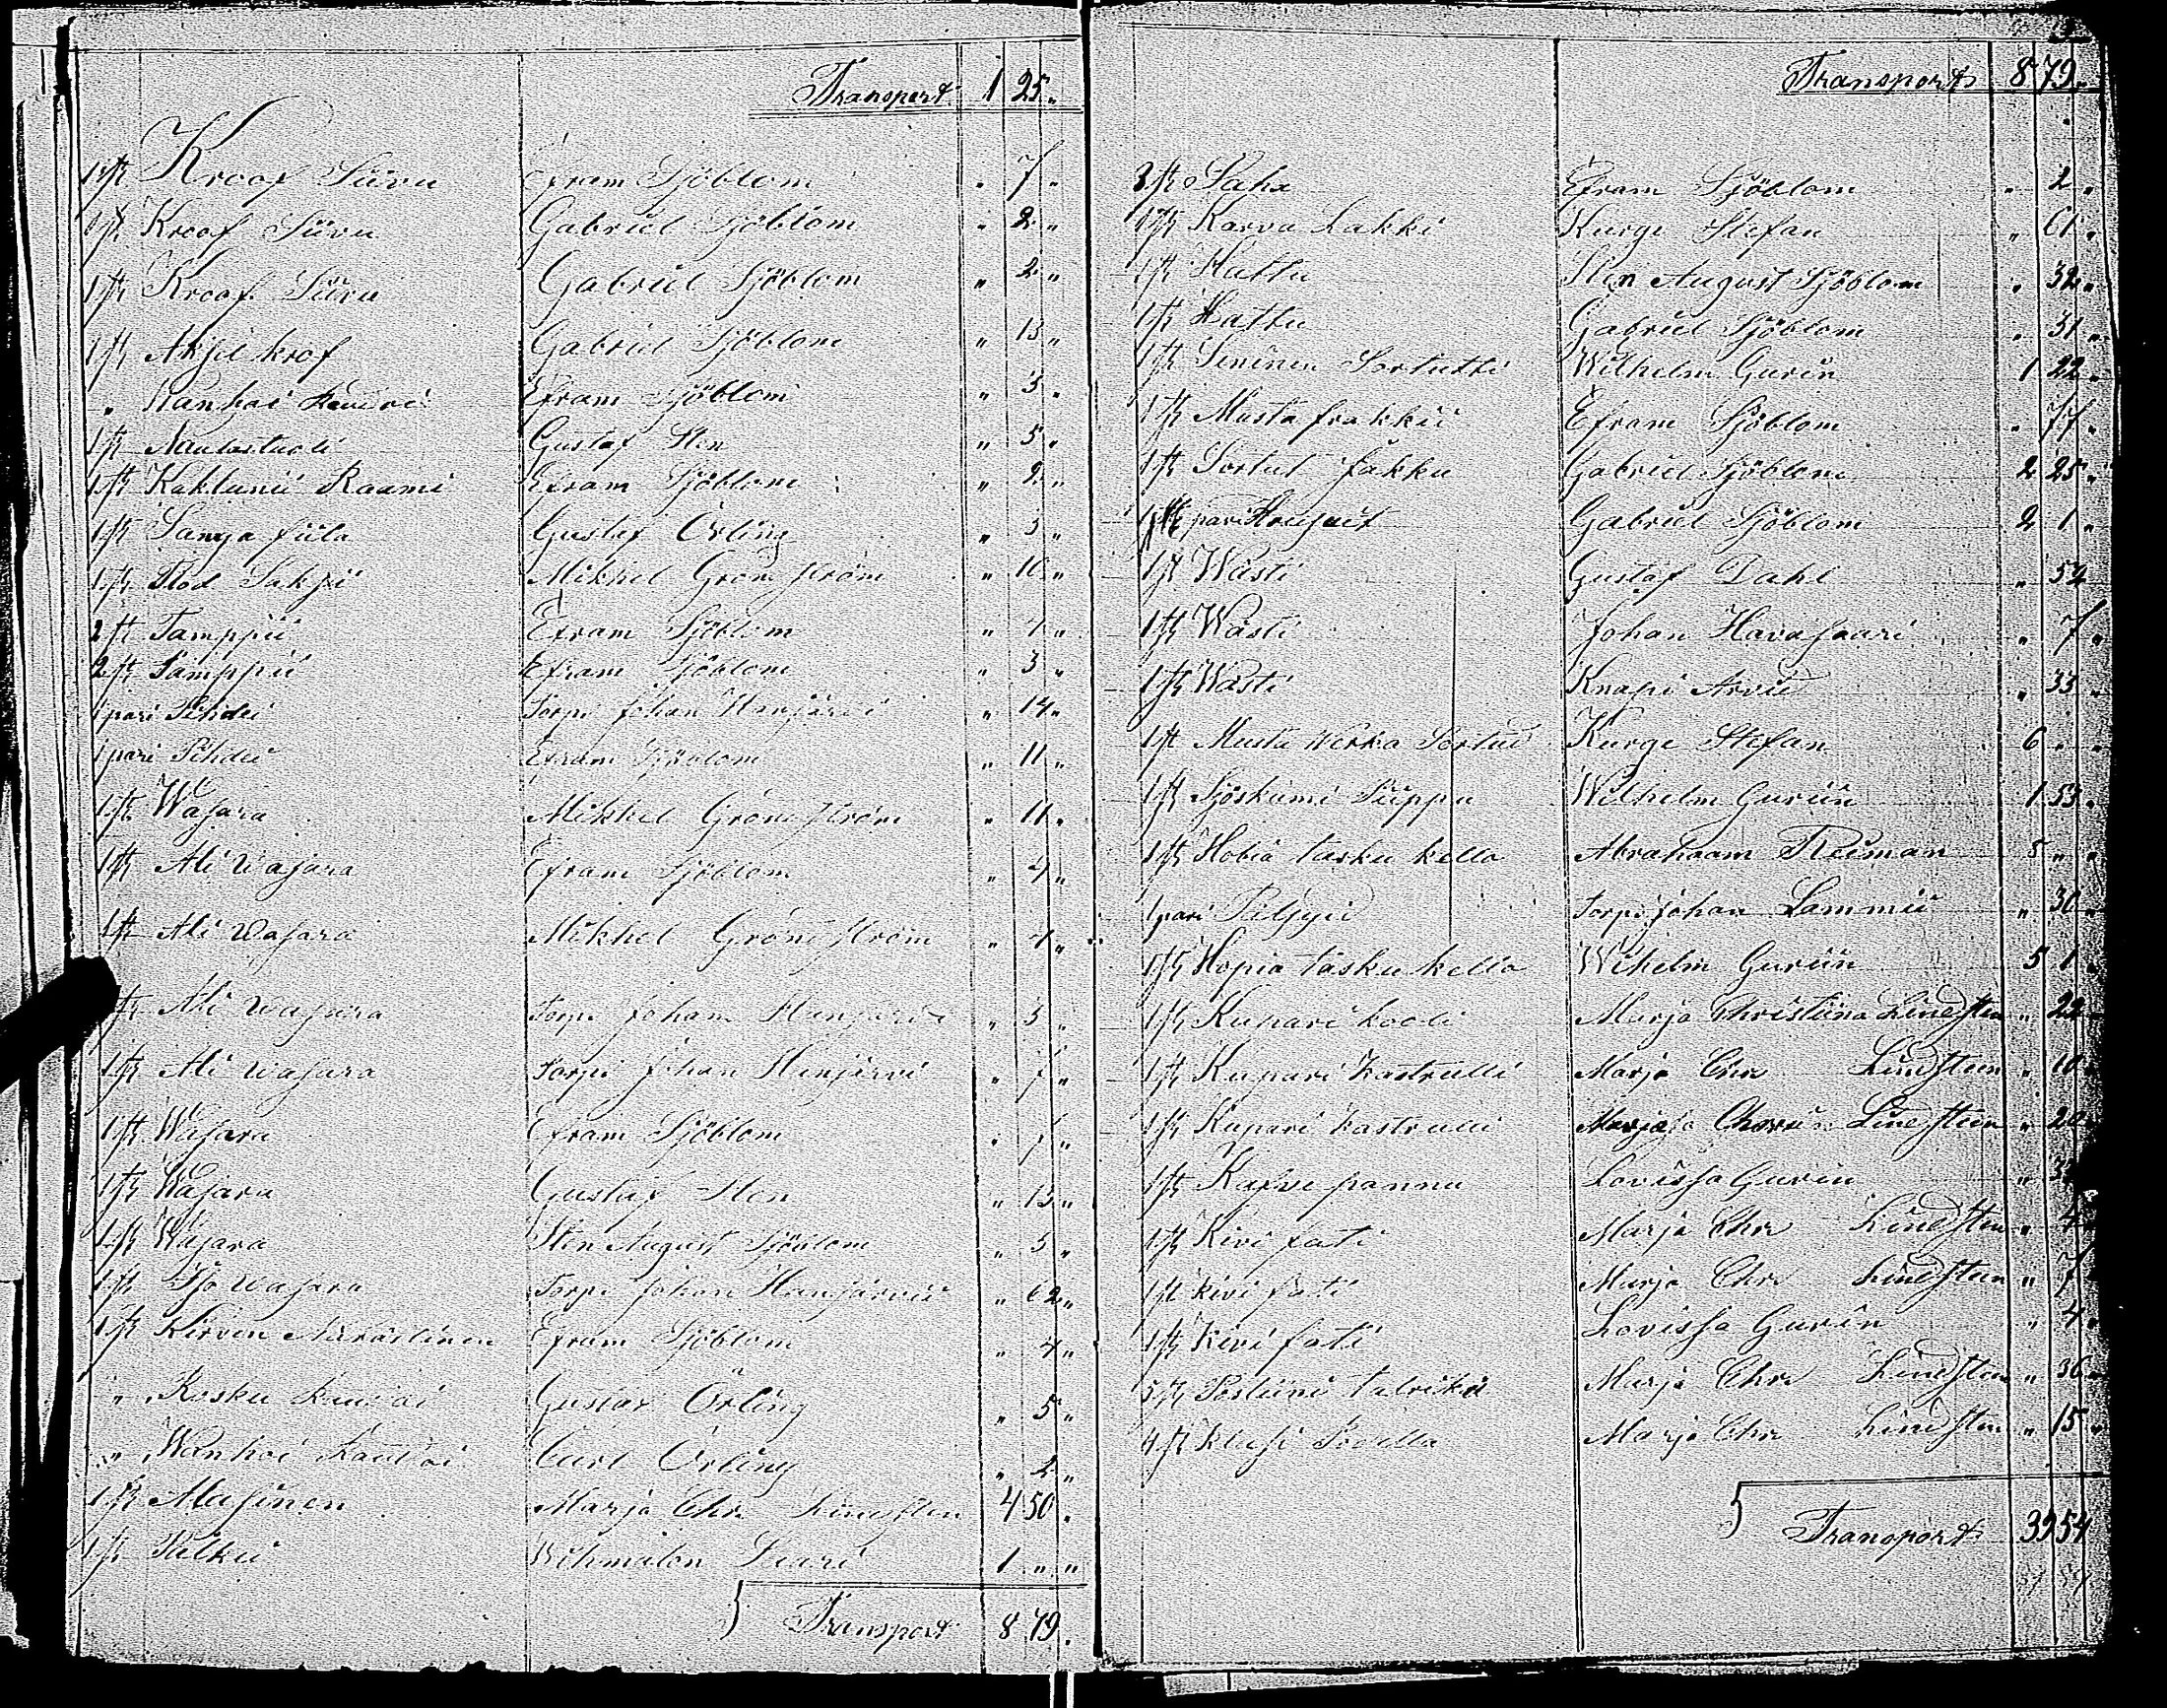 Transport 1 25 "
1 ft Kroof Siivu Efram Sjöblom " 7 "
1 ft Kroof Siivu Gabriel Sjöblom " 2 "
1 ft Kroof Siivu Gabriel Sjöblom " 2 "
1 ft Aksel krof Gabriel Sjöblom " 13 "
" Wanhai Efram Sjöblom " 3 "
1 ft Gustaf Sten " 5 "
1 ft Kaklunii Raami Efram Sjöblom " 2 "
1 ft Sanga fiila Gustaf Örling " 3 "
1 ft Efram Mikkel Grönström " 10 "
2 ft Tamppii Efram Sjöblom " 4 "
2 ft Tamppii Efram Sjöblom " 3 "
1 pari Pihdei Torpi Johan Hanjärvi " 14 "
1 pari Pihdei Efram Sjöblom " 11 "
1 ft Wasara Mikkel Grönström " 11 "
1 ft Ali wasara Efram Sjöblom " 4 "
1 ft Ali wasara Mikkel Grönström " 4 "
1 ft Ali wasara Torpi Johan Hanjärvi " 3 "
1 ft Ali wasara Torpi Johan Hanjärvi " 7 "
1 ft Wasara Efram Sjöblom " 7 "
1 ft Wasara Gustaf Sten " 13 "
1 ft Wasara Sten August Sjöblom " 5 "
1 ft wasara Torpi Johan Hanjärvii " 62 "
1 ft Kirven Efram Sjöblom " 4 "
" Gustaf Örling " 5 "
" Wanhoi Carl Örling " 2 "
1 ft Marja Chr Lindsten 4 50 "
1 ft Liari 1 " "
Transport 8 79 "
Transport 8 79 "
3 ft Saha Efram Sjöblom " 2 "
1 ft Karva Lakki Kurge Stefan " 61 "
1 ft Hattu Sten August Sjöblom " 32 "
1 ft Hattu Gabriel Sjöblom " 31 "
1 ft Sininen Sortutti Wilhelm Gurin 1 22 "
1 ft Musta frakkii Efram Sjöblom " 77 "
1 ft Sortut fakku Gabriel Sjöblom 2 25 "
1 pari Gabriel Sjöblom 2 1 "
1 ft Wästi Gustaf Dahl " 54
1 ft Wästi Johan Havasaari " 7 "
1 ft Wästi Knapi Arvid " 33 "
1 ft Musta Werka Sortut Kurge Stefan 6 " "
1 ft Piippu Wilhelm Guriin 1 53 "
1 ft Hobia tasku kello Abrahaam Reiman 5 " "
1 pari Torpi Johan Lammii " 30 "
1 ft Hopia tasku kello Wihelm Guriin 5 1 "
1 ft Kupari kooli Marja Christiina Lindsten " 22
1 ft Kupari kastrulli Marja Chr Lindsteen " 10
1 ft Kupari kastrulli Lindsteen " 20
1 ft Kafvi pannu Lovisa Gurin
1 ft Kivi fati Marja Chr Lindsten " 4
1 ft kivi fati Marja Chr Lindsteen " 7
1 ft kivi fati Lovisa Gurin " 4 "
5 ft Posliini talrikii Marja Chr Lindsten " 36 "
4 ft Marja Chr Lindsten " 15 "
Transport 39 54